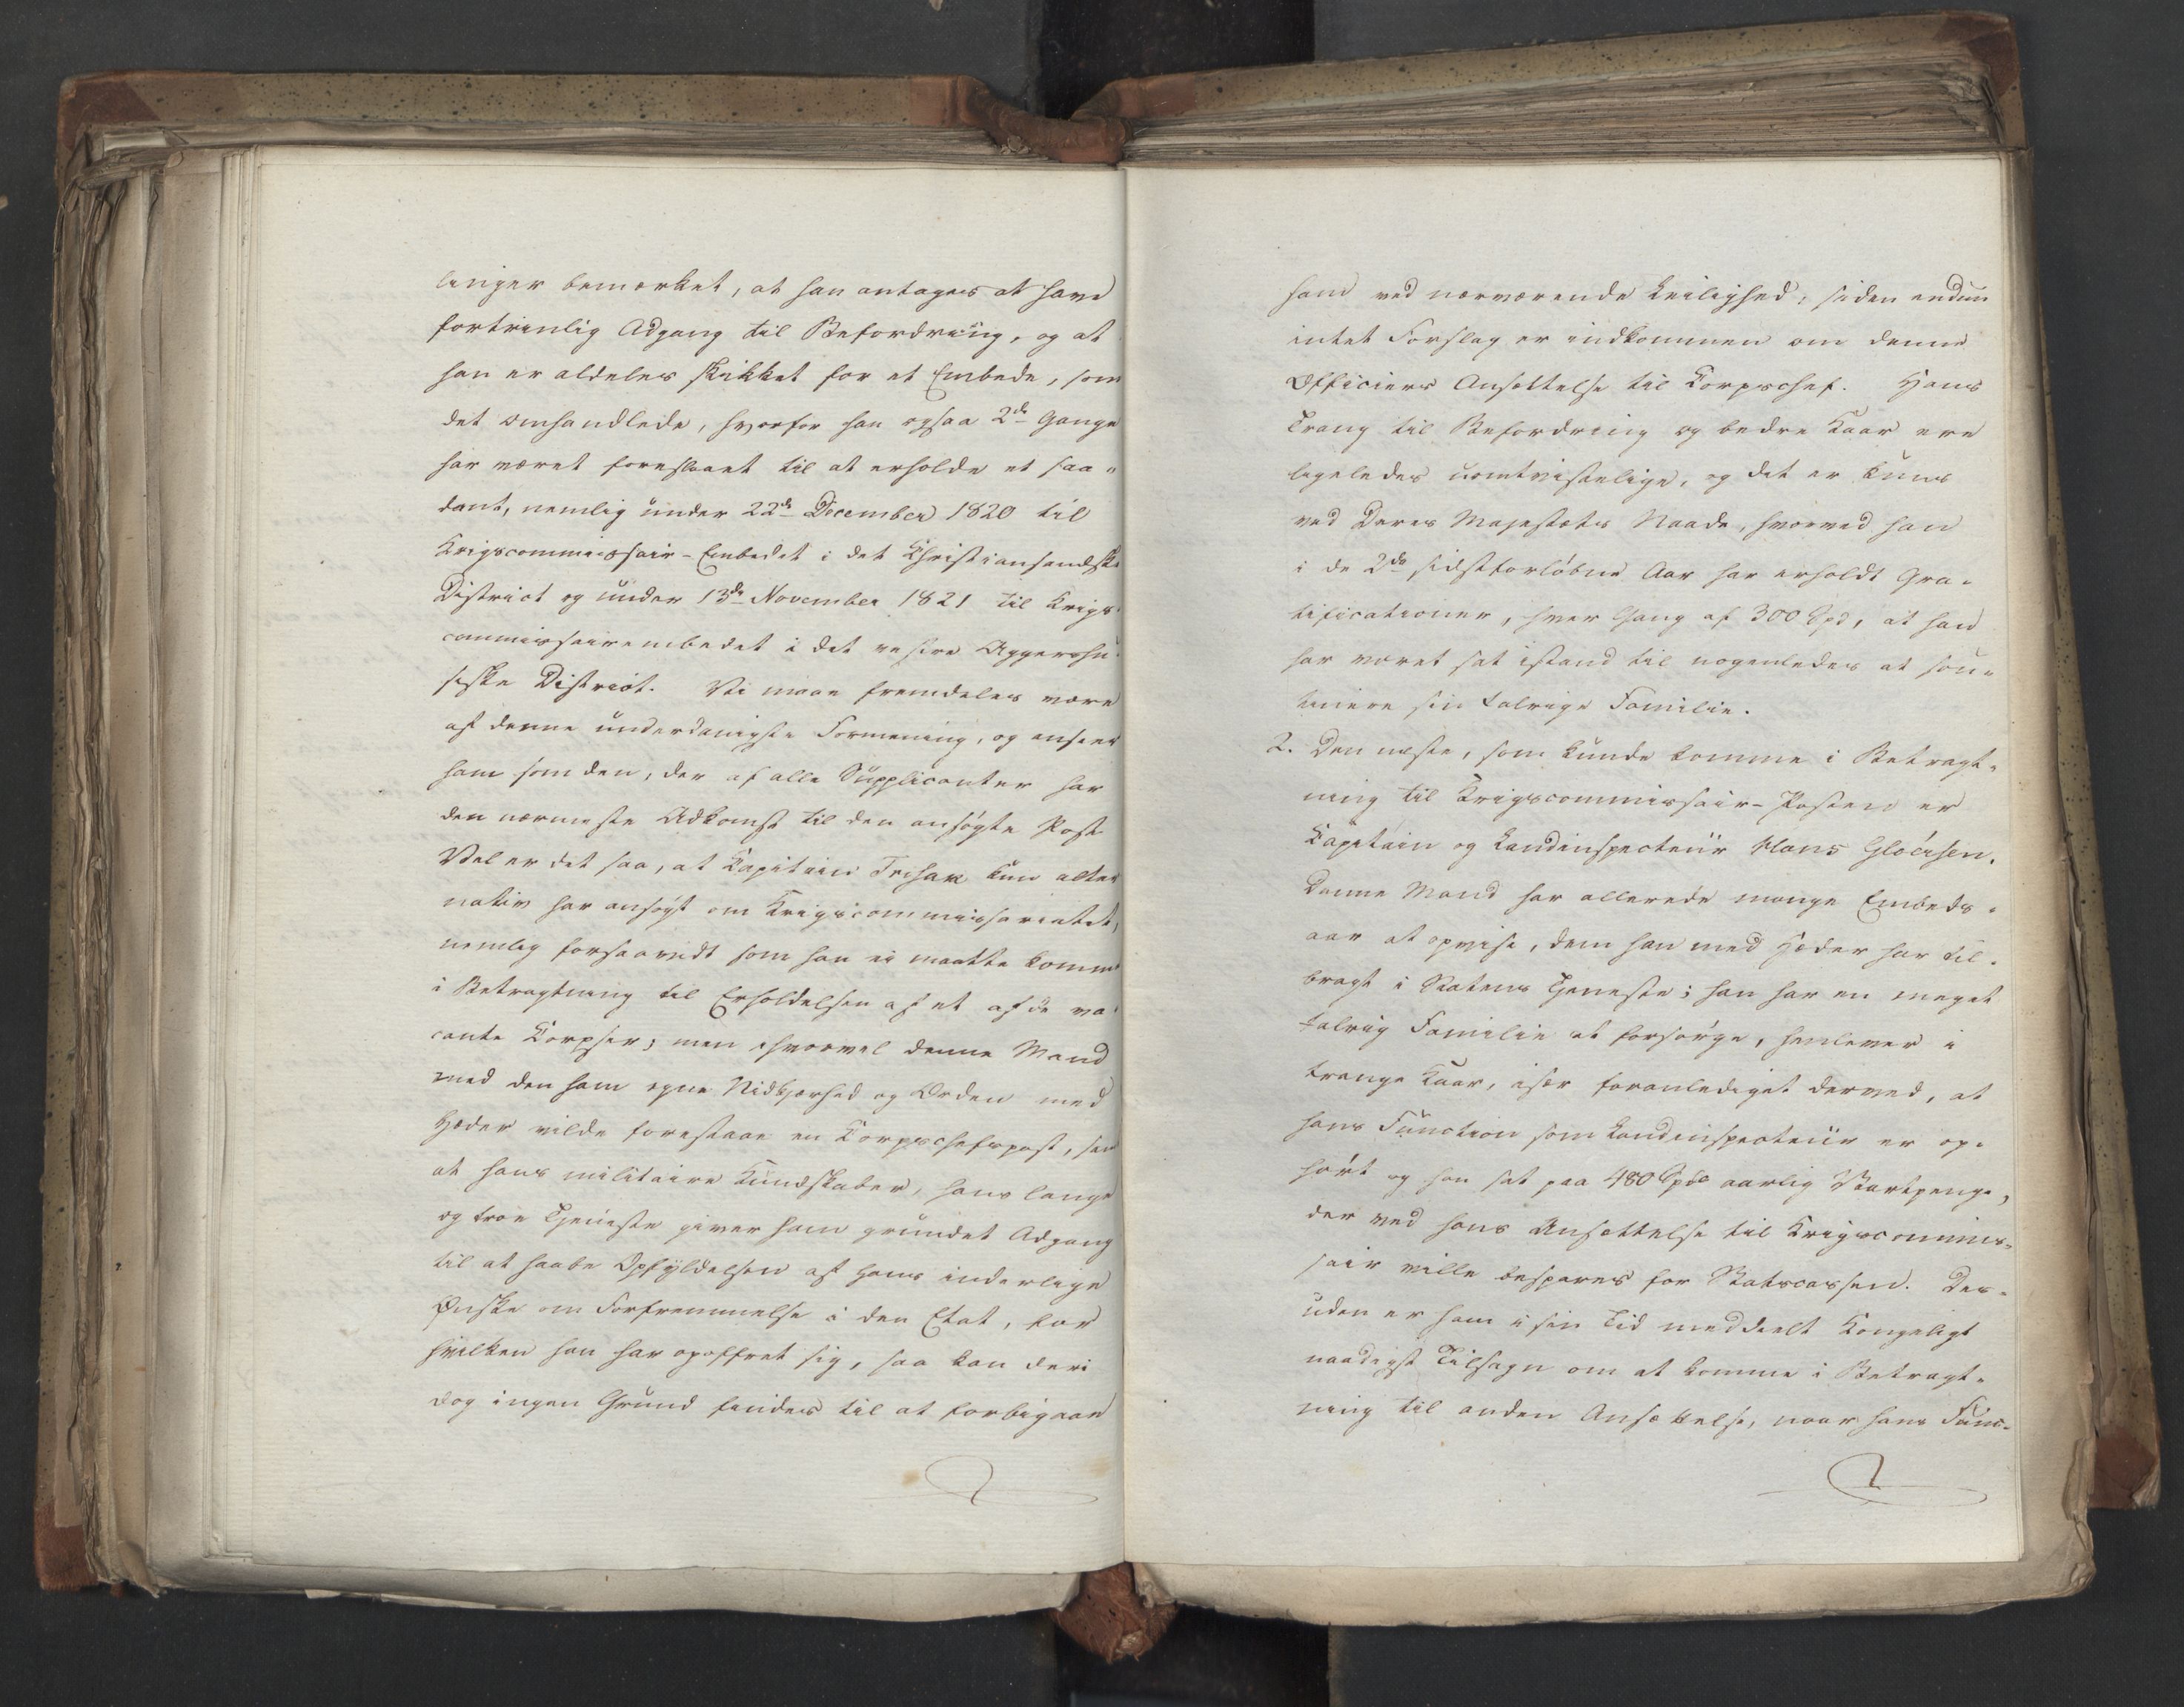 linger bemærket, at han antages at have
fortrinlig Adgang til Befordring, og at
han er aldeles skikket for et Embede, som
det omhandlede, hvorfor han ogsaa 2de Gange
har været foreslaaet til at erholde et saa-
dant, nemlig under 22de December 1820 til
Krigscommissair-Embedet i det Christiansandske
District og under 13de November 1821 til Krigs-
commissairembedet i det vestre Aggershu-
siske District. Vi maae fremdeles være
af denne underdanigste Formening, og ansee
ham som den, der af alle Supplicanter har
den nærmeste Adkomst til den ansøgte Post.
Vel er det saa, at Capitain kun alter
nativ har ansøgt om Krigscommissariatet,
nemlig forsaavidt som han ei maatte komme
i Betragtning til Erholdelsen af et af de va-
cante Corpser; men ihvorvel denne Mand
med den ham egne Nidkjærhed og Orden med
Hæder vilde forestaae en Corpschefspost, samt
at hans militaire Kundskaber, hans lange
og troe Tjeneste giver ham grundet Adgang
til at haabe Opfyldelsen af hans inderlige
Ønske om Forfremmelse i den Etat, for
hvilken han har opoffret sig, saa kan deri
dog ingen Grund findes til at forbigaae
ham ved nærværende Leilighed, siden endnu
intet Forslag er indkommen om denne
Officiers Ansættelse til Corpschef. Hans
Trang til Befordring og bedre Kaar ere
ligeledes uomtvistelige, og det er kuns
ved Deres Majestæts Naade, hvorved han
i de 2de sidstforløbne Aar har erholdt Gra-
tificationer, hver Gang af 300 Spd, at han
har været sat istand til nogenledes at sou-
tinere sin talrige Familie.
2. Den næste, som kunde komme i Betragt-
ning til Krigscommissair-Posten er
Capitain og Landinspecteur Hans Gløersen.
Denne Mand har allerede mange Embeds-
aar at opvise, dem han med Hæder har til-
bragt i Statens Tjeneste; han har en meget
talrig Familie at forsørge, henlever i
trange Kaar, især foranlediget derved, at
hans Function som Landinspecteur er op-
hørt og han sat paa 480 Spd aarlig Vartpenge,
der ved hans Ansættelse til Krigscommis-
sair ville bespares for Statscassen. Des-
uden er ham i sin Tid meddeelt Kongeligt
naadigst Tilsagn om at komme i Betragt-
ning til anden Ansættelse, naar hans Func-